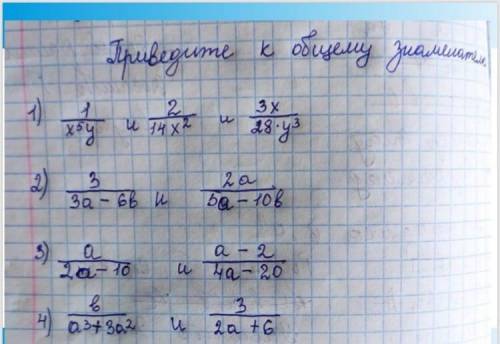 Приведите к общему знаменателю
1) 1/x⁵y и 2/14x² и 3x/28·y³
2) 3/3a-6в и 2a/5a-10в
3) a/2a-10 и a-2/4a-20
4) в/a³+3a² и 3/2a+6